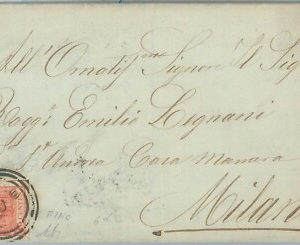 All' Ornatis^mo Signore Il Sig
Ragg^e Emilio Lignani
S^t Andrea Casa Manara
FINO
Milan